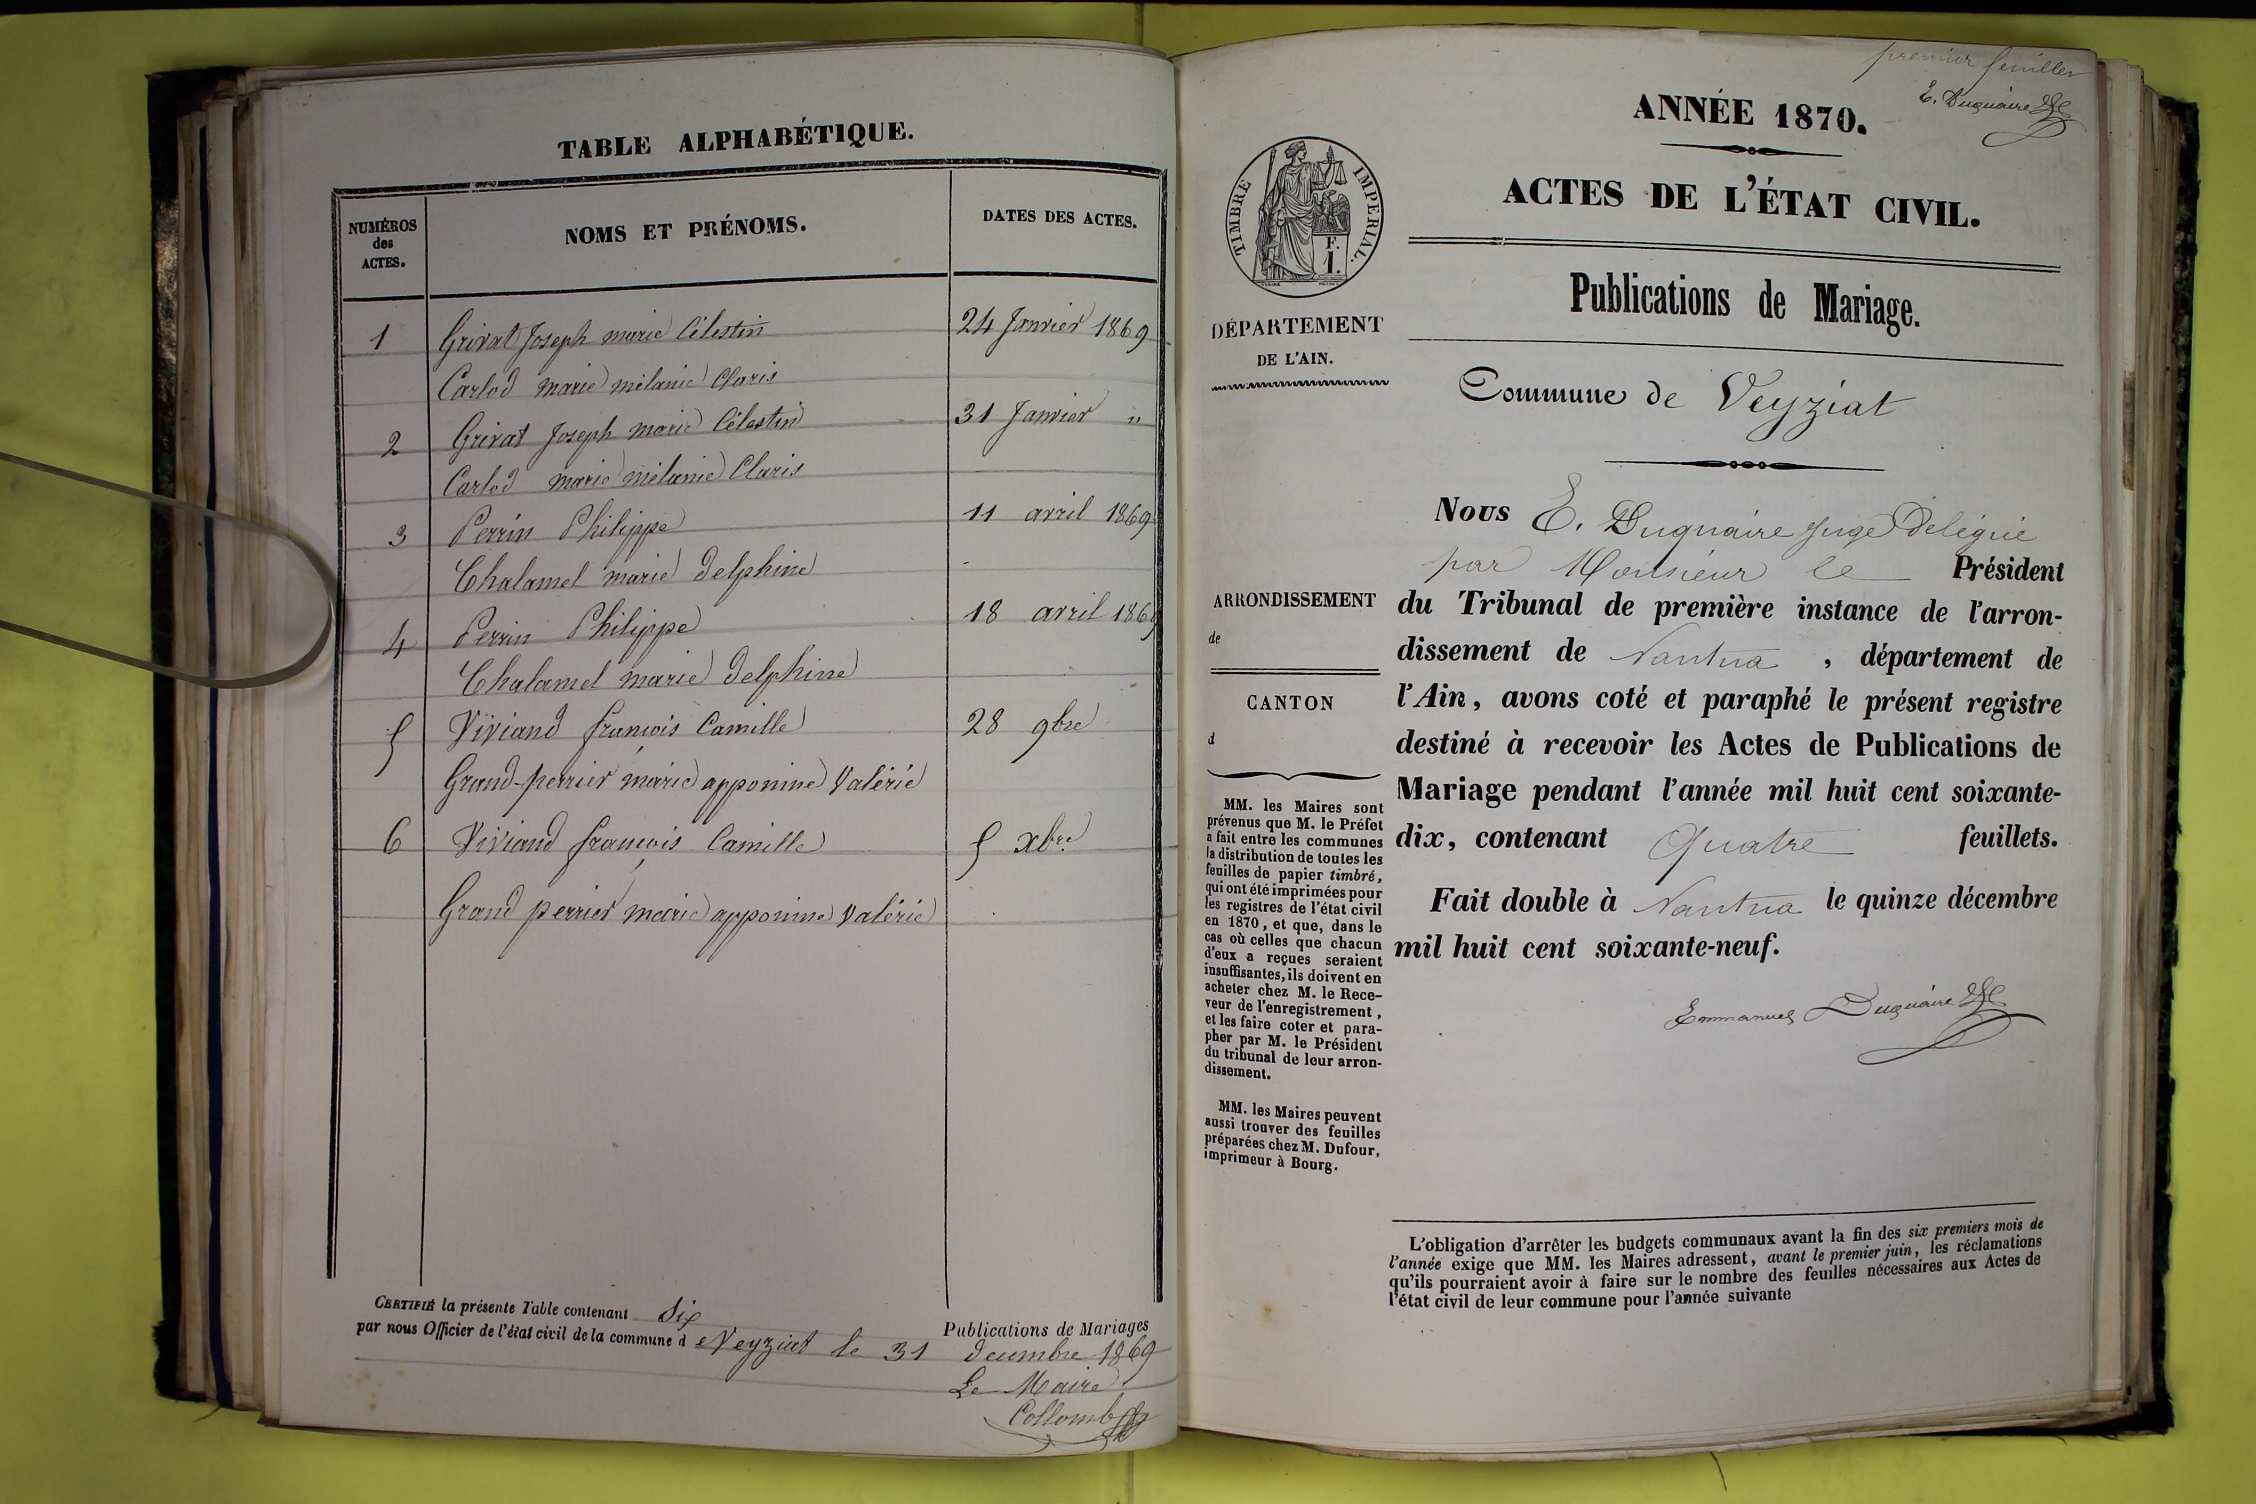 TABLE ALPHABÉTIQUE.
NUMÉROS
des
ACTES.
NOMS ET PRÉNOMS.
DATES DES ACTES.
1 Grivat Joseph marie Célestin 24 Janvier 1869
Carlod marie mélanie Claris
2 Grivat Joseph marie Célestin 31 Janvier "
Carlod marie mélanie Claris
3 Perrin Philippe 11 avril 1869
Chalamel marie delphine
4 Perrin Philippe 18 avril 1869
Chalamel marie delphine
5 Viviand françois Camille 28 9bre
Grand-perrier marie apponine Valérie
6 Viviand françois Camille 5 xbre
Grand perrier marie apponine Valérie
CERTIFIÉ la présente Table contenant Six Publications de Mariages
par nous Officier de l'état civil de la commune d e Veyziat le 31 decembre 1869
Le Maire
Collomb
premier feuillet
E. Duquaire
ANNÉE 1870.
ACTES DE L'ÉTAT CIVIL.
TIMBRE IMPERIAL.
F.
1.
Publications de Mariage.
DÉPARTEMENT
DE L'AIN.
Commune de Veyziat
ARRONDISSEMENT
de
CANTON
d
MM. les Maires sont
prévenus que M. le Préfet
a fait entre les communes
la distribution de toutes les
feuilles de papier timbré,
qui ont été imprimées pour
les registres de l'état civil
en 1870, et que, dans le
cas où celles que chacun
d'eux a reçues seraient
insuffisantes, ils doivent en
acheter chez M. le Rece-
veur de l'enregistrement,
et les faire coter et para-
pher par M. le Président
du tribunal de leur arron-
dissement.
MM. les Maires peuvent
aussi trouver des feuilles
préparées chez M. Dufour,
imprimeur à Bourg.
Nous E. Duquaire Juge Délégué
par Monsieur le Président
du Tribunal de première instance de l'arron-
dissement de Nantua, département de
l'Ain, avons coté et paraphé le présent registre
destiné à recevoir les Actes de Publications de
Mariage pendant l'année mil huit cent soixante-
dix, contenant Quatre feuillets.
Fait double à Nantua le quinze décembre
mil huit cent soixante-neuf.
Emmanuel Duquaire
L'obligation d'arrêter les budgets communaux avant la fin des six premiers mois de
l'année exige que MM. les Maires adressent, avant le premier juin, les réclamations
qu'ils pourraient avoir à faire sur le nombre des feuilles nécessaires aux Actes de
l'état civil de leur commune pour l'année suivante